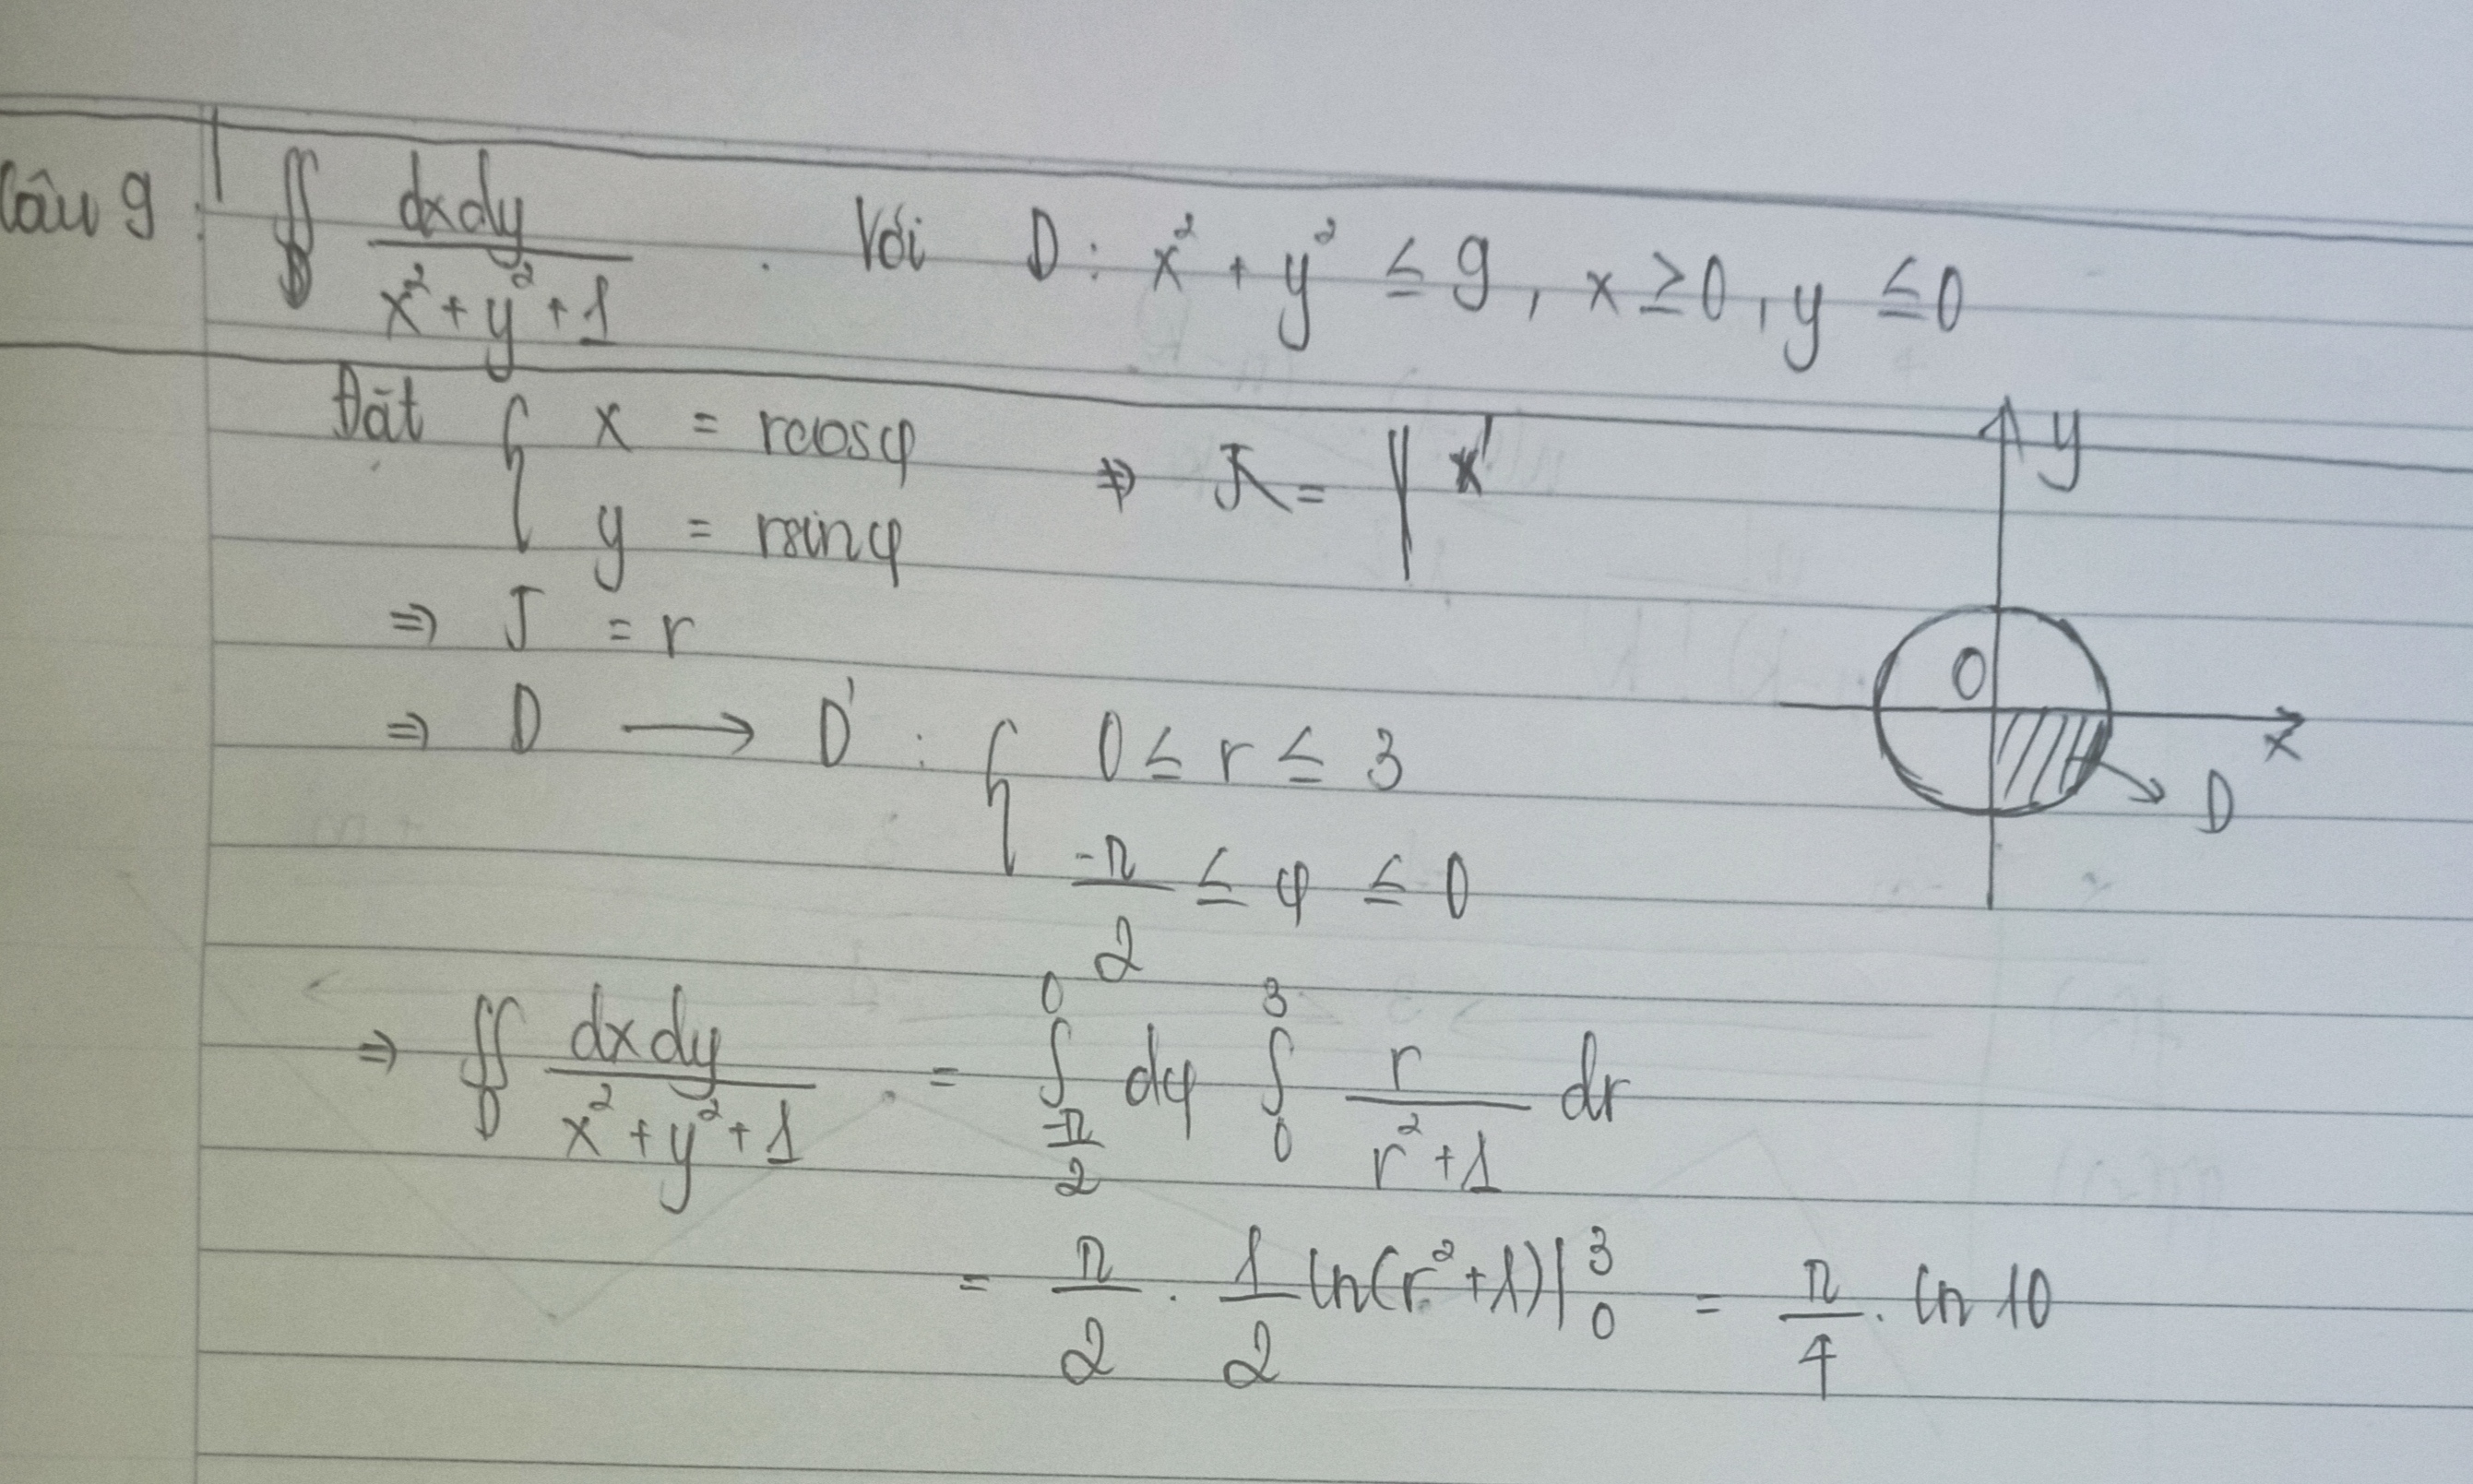 Câu 9: ∬_D dxdy/(x²+y²+1). Với D: x² + y² ≤ 9, x ≥ 0, y ≤ 0
Đặt { x = rcosφ
y = rsinφ
⇒ J = | x'
⇒ J = r
⇒ D ⟶ D': { 0 ≤ r ≤ 3
-π/2 ≤ φ ≤ 0
y
O
x
D
⇒ ∬_D dxdy/(x²+y²+1) = ∫_{-π/2}^{0} dφ ∫_0^3 r/(r²+1) dr
= π/2 . 1/2 ln(r²+1)|_0^3 = π/4 . ln 10